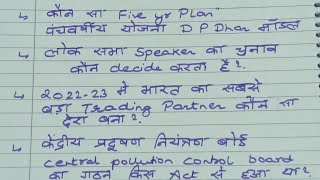 ↳ कौन सा Five yr Plan"
पंचवर्षीय योजना D P Dhar मॉडल
↳ लोक सभा Speaker का चुनाव
कौन decide करता है?
↳ 2022-23 मे भारत का सबसे
बड़ा Trading Partner कौन सा
देश बना?
↳ केंद्रीय प्रदूषण नियंत्रण बोर्ड
central pollution control board
का गठन किस Act से हुआ था?